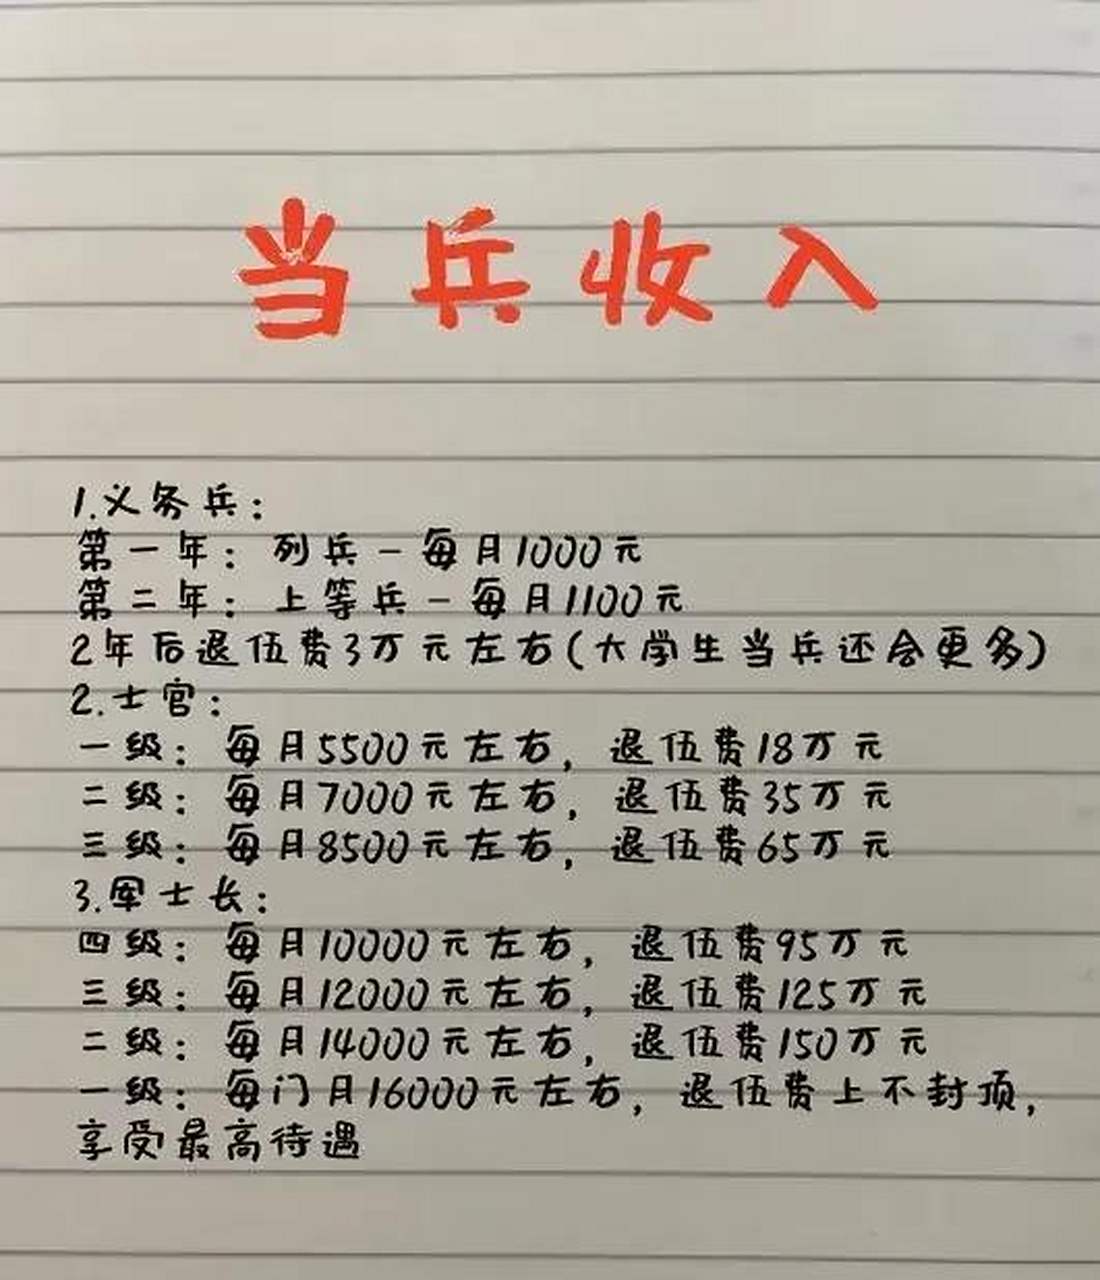 当兵收入
1.义务兵:
第一年: 列兵-每月1000元
第二年: 上等兵-每月1100元
2年后退伍费3万元左右(大学生当兵还会更多)
2.士官:
一级: 每月5500元左右, 退伍费18万元
二级: 每月7000元左右, 退伍费35万元
三级: 每月8500元左右, 退伍费65万元
3.军士长:
四级: 每月10000元左右, 退伍费95万元
三级: 每月12000元左右, 退伍费125万元
二级: 每月14000元左右, 退伍费150万元
一级: 每门月16000元左右, 退伍费上不封顶,
享受最高待遇